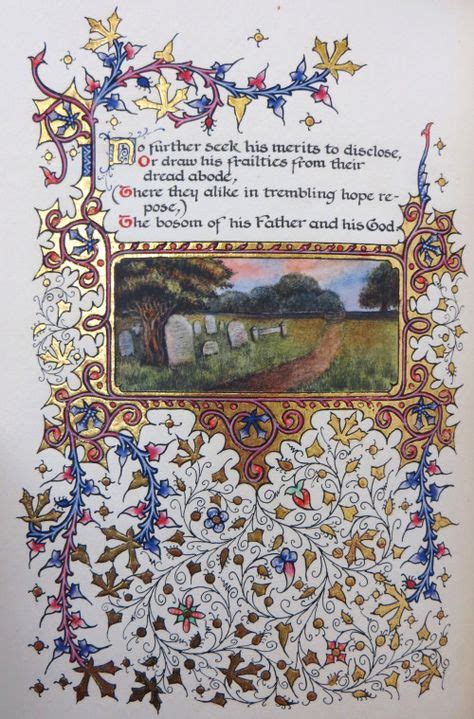 No further seek his merits to disclose,
Or draw his frailties from their
dread abode,
(There they alike in trembling hope re-
pose,)
The bosom of his Father and his God.